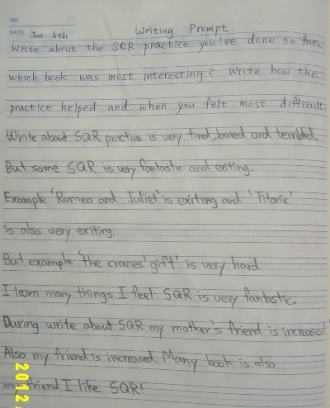 NO
DATE Jan. 6th Writing Prompt
Write about the SQR practice you've done so far.
which book was most interesting? Write how the
practice helped and when you felt most difficult.
Write about SQR practice is very tired, bored and
But some SQR is very fantastic and exiting.
Example 'Romeo and Juliet' is exiting and 'Titanic'
is also very exiting.
But example 'The cranes' gift' is very hard
I learn many things I feel SQR is very fantastic.
During write about SQR my mother's friend is increase
Also my friend is increased. Many book is also
my friend I like SQR!
2012